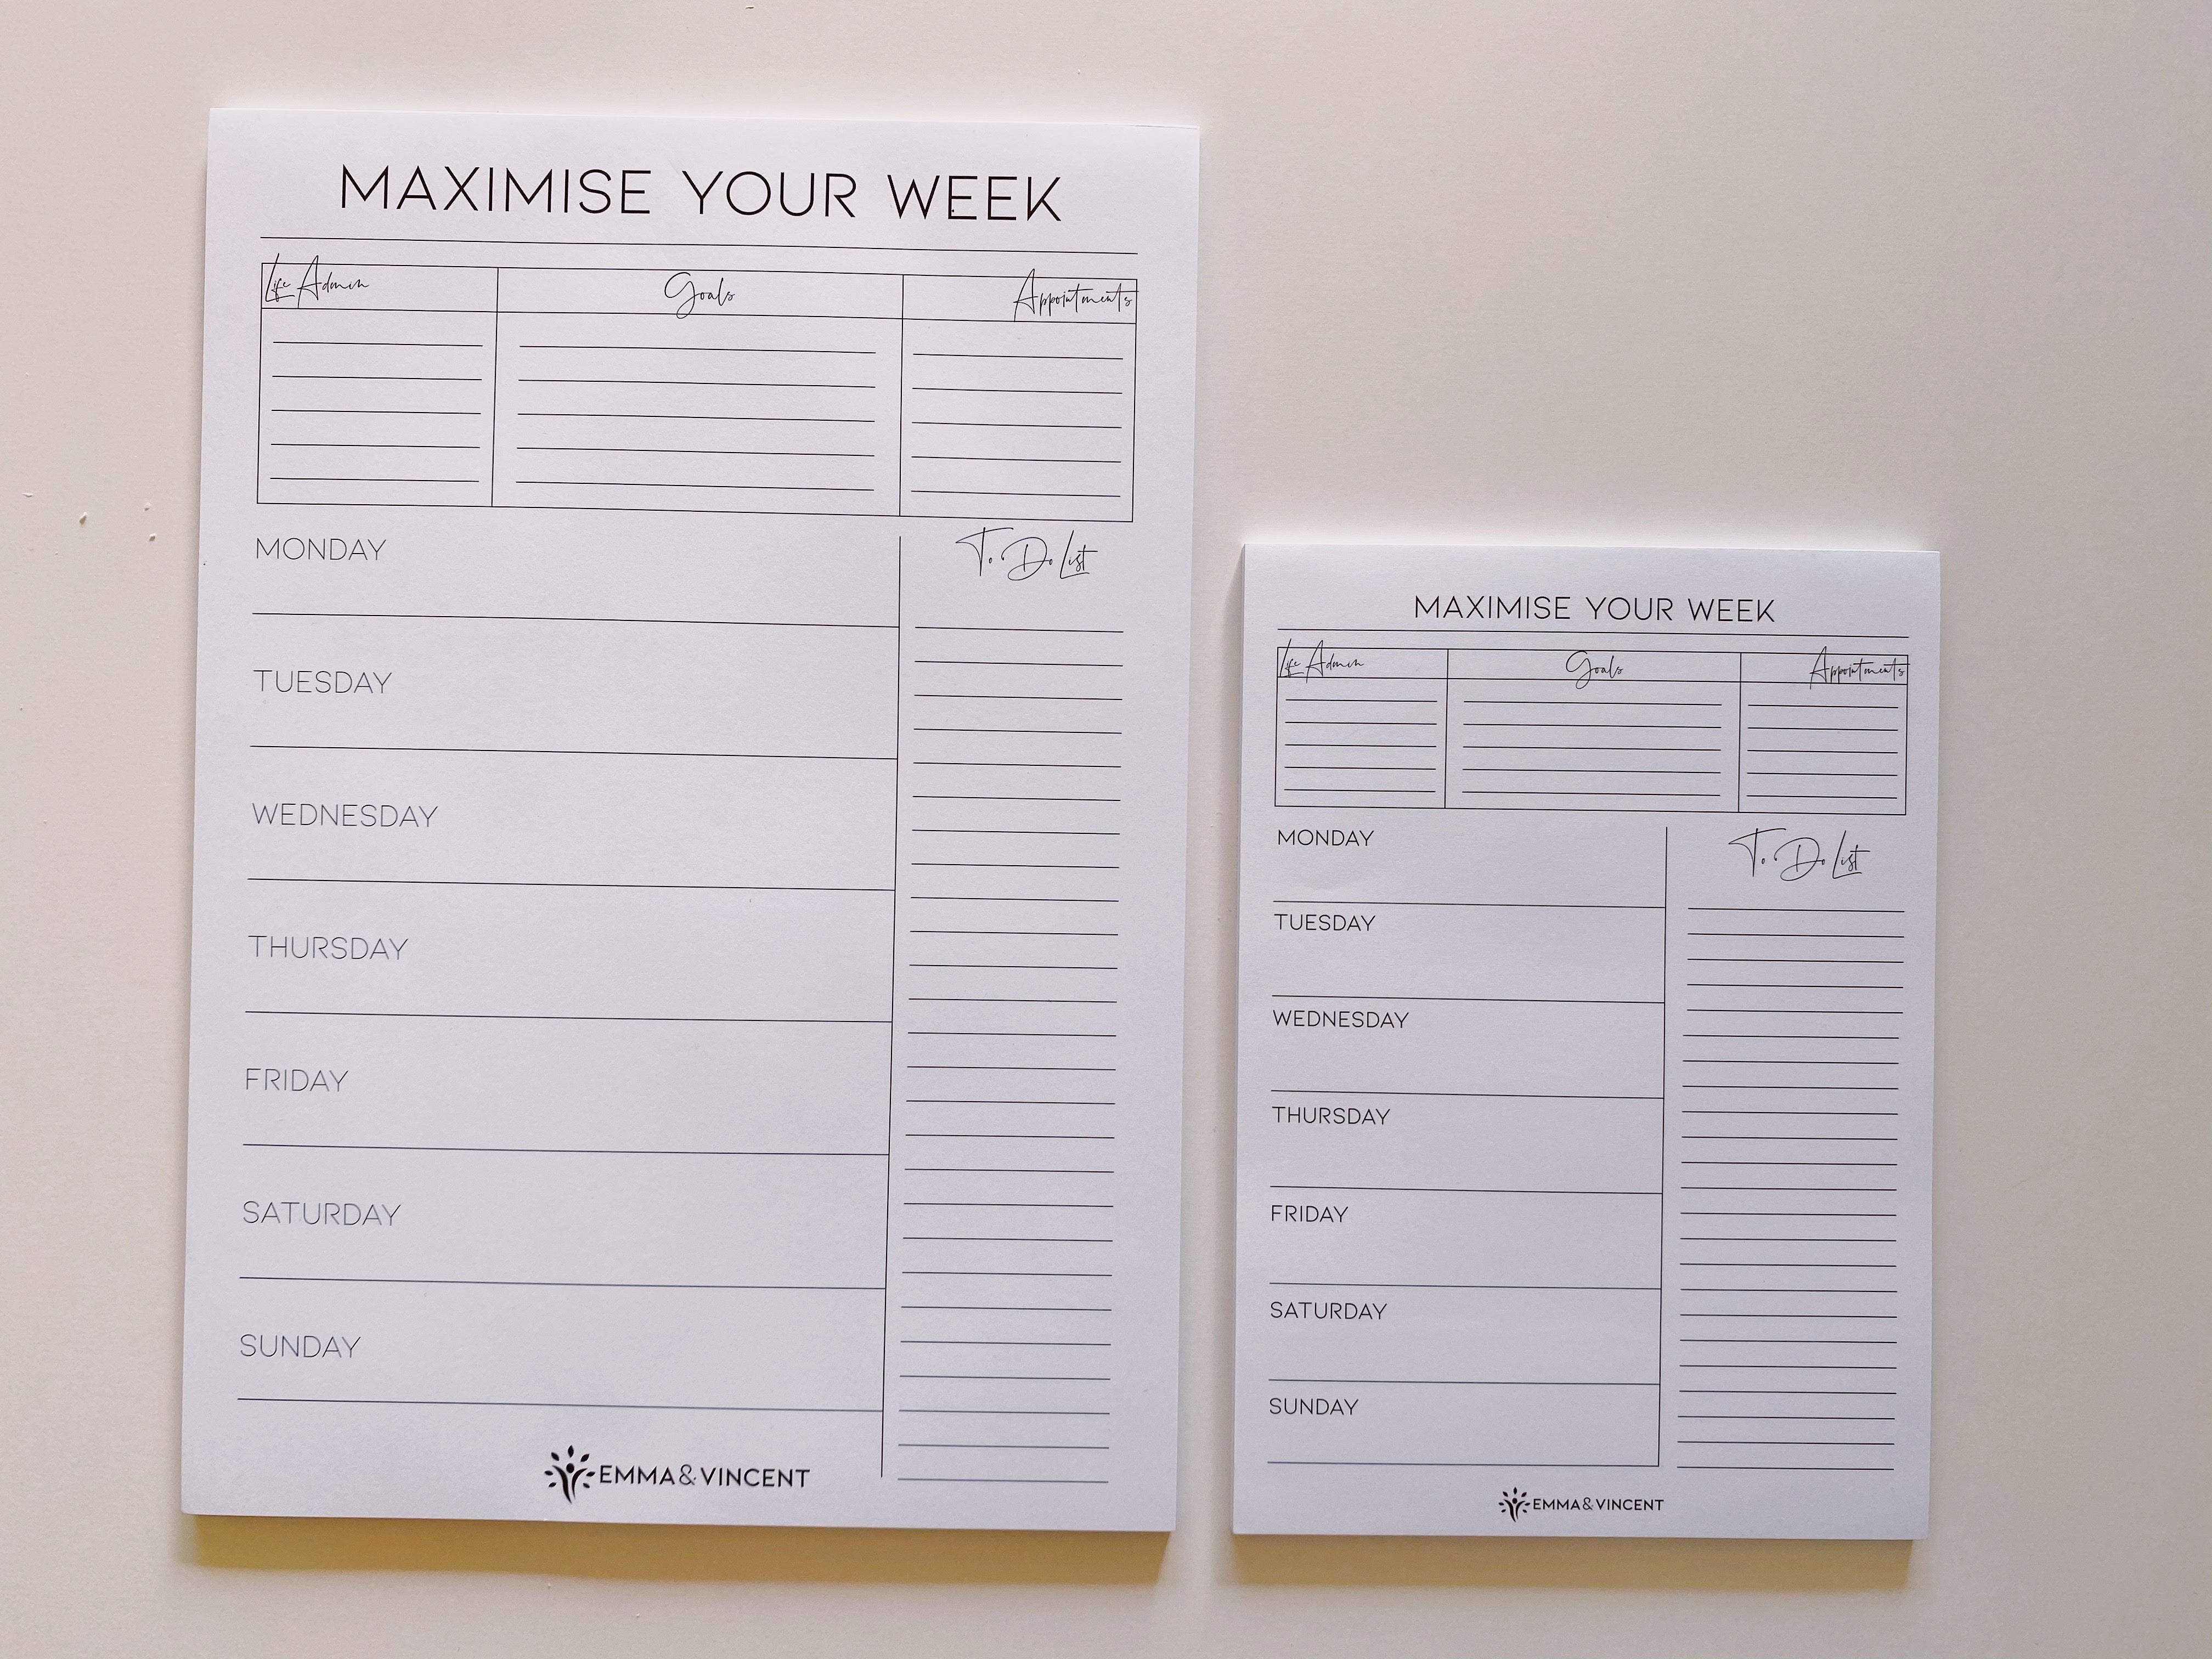 MAXIMISE YOUR WEEK
Life Admin Goals Appointments
MONDAY To Do List
TUESDAY
WEDNESDAY
THURSDAY
FRIDAY
SATURDAY
SUNDAY
EMMA&VINCENT
MAXIMISE YOUR WEEK
Life Admin Goals Appointments
MONDAY To Do List
TUESDAY
WEDNESDAY
THURSDAY
FRIDAY
SATURDAY
SUNDAY
EMMA&VINCENT